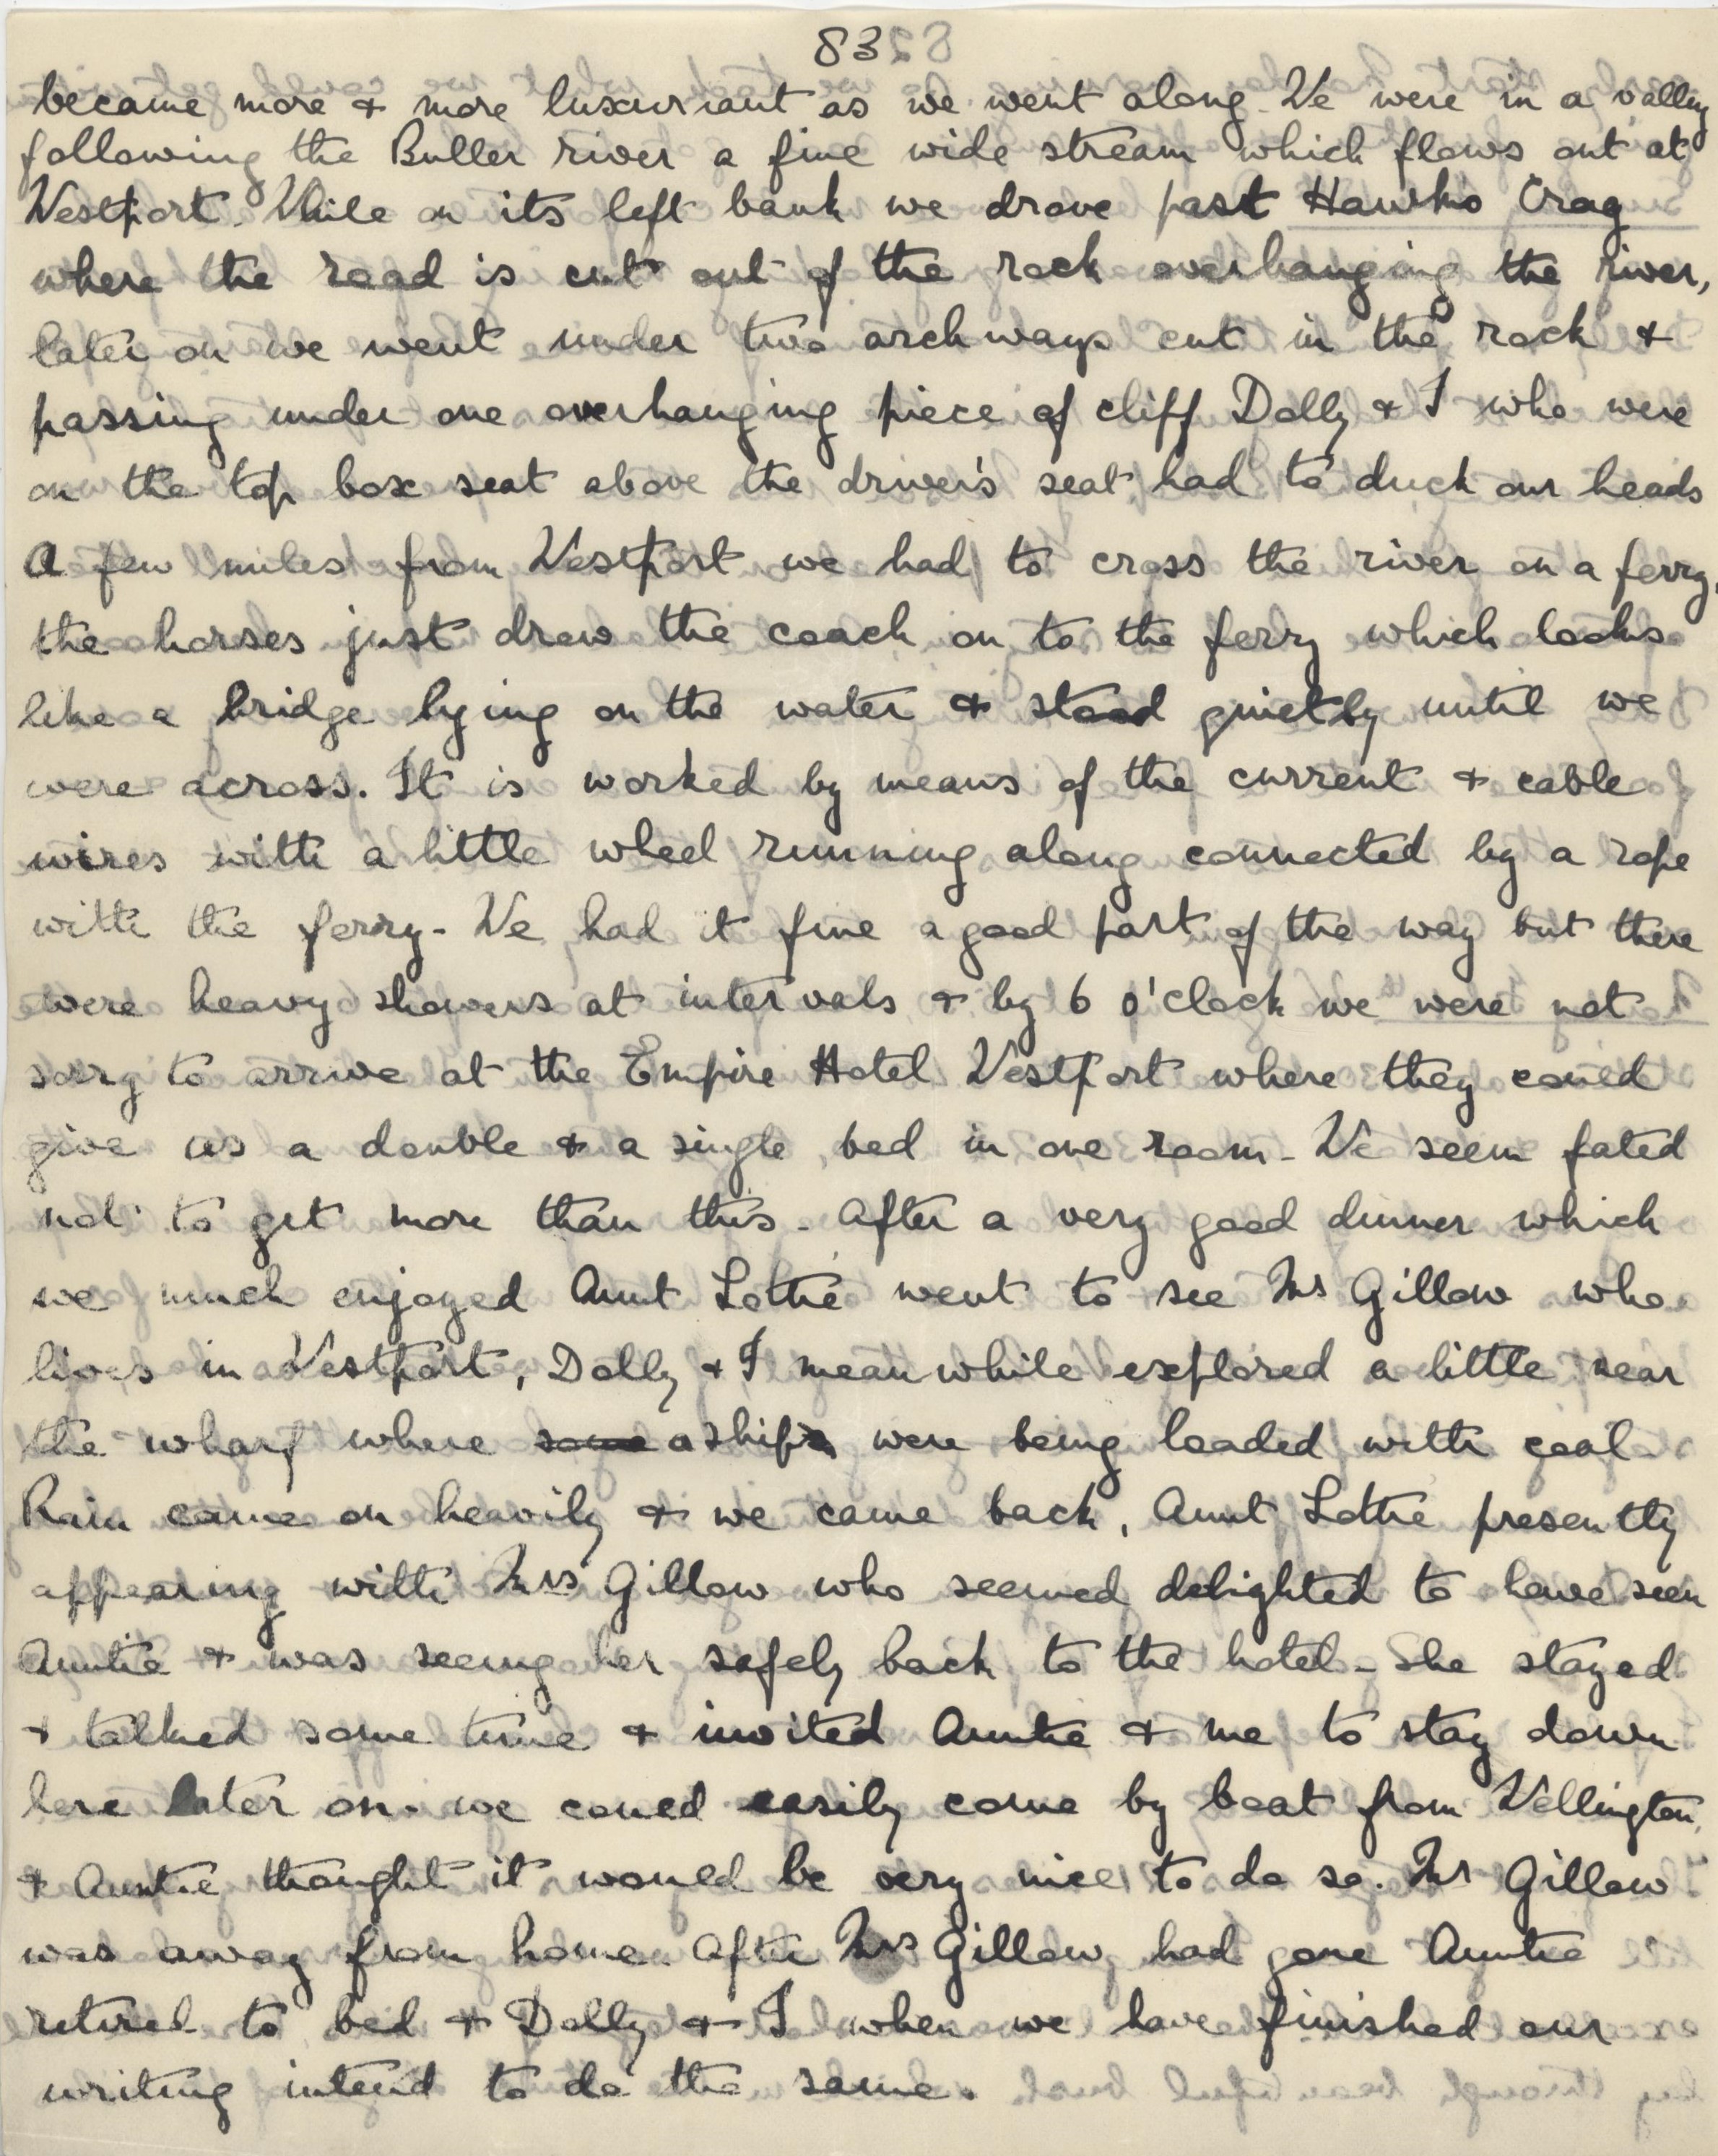 83
became more & more luxurriant as we went along. We were in a valley
following the Buller river a fine wide stream which flows out at
Westport. While on its left bank we drove past Hawks Crag
where the road is cut out of the rock overhanging the river,
later on we went under two archways cut in the rock &
passing under one overhanging piece of cliff Dolly & I who were
on the top box seat above the driver's seat had to duck our heads
A few miles from Westport we had to cross the river on a ferry,
the horses just drew the coach on to the ferry which looks
like a bridge lying on the water & stood quietly until we
were across. It is worked by means of the current & cable
wires with a little wheel running along connected by a rope
with the ferry - We had it fine a good part of the way but there
were heavy showers at intervals & by 6 o'clock we were not
sorry to arrive at the Empire Hotel Westport where they could
give us a double & a single bed in one room - We seem fated
not to get more than this - After a very good dinner which
we much enjoyed Aunt Lottie went to see Mrs Gillow who
lives in Westport, Dolly & I meanwhile explored a little near
the wharf where some a ships were being loaded with coal
Rain came on heavily & we came back, Aunt Lottie presently
appearing with Mrs Gillow who seemed delighted to have seen
Auntie & was seeing her safely back to the hotel - She stayed
& talked some time & invited Auntie & me to stay down
here later on. we could easily come by boat from Wellington,
& Auntie thought it would be very nice to do so. Mr Gillow
was away from home. After Mrs Gillow had gone Auntie
retired to bed & Dolly & I when we have finished our
writing intend to do the same.